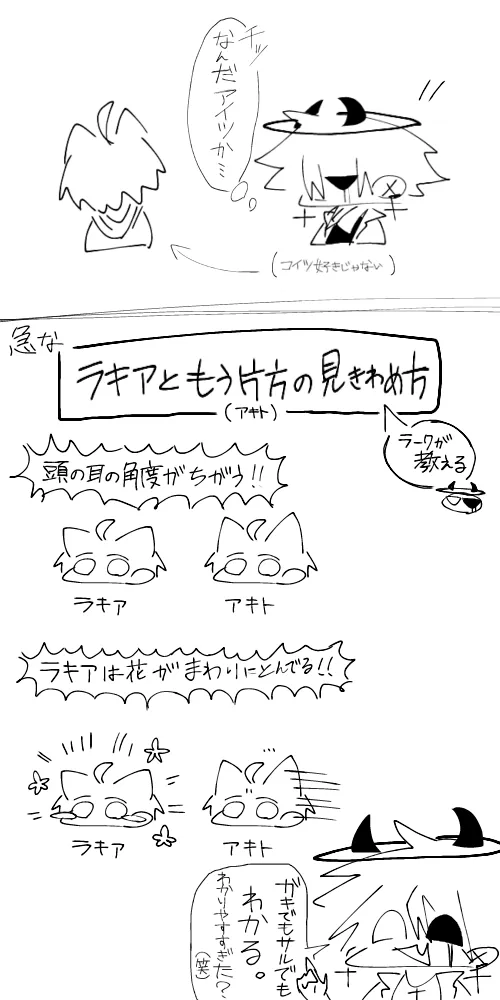 チッ
なんだアイツか…
(コイツ好きじゃない)
急な
ラキアともう片方の見きわめ方
(アキト)
ラークが
教える
頭の耳の角度がちがう!!
ラキア
アキト
ラキアは花がまわりにとんでる!!
ラキア
アキト
ガキでもサルでも
わかる。
わかりやすすぎた?
(笑)